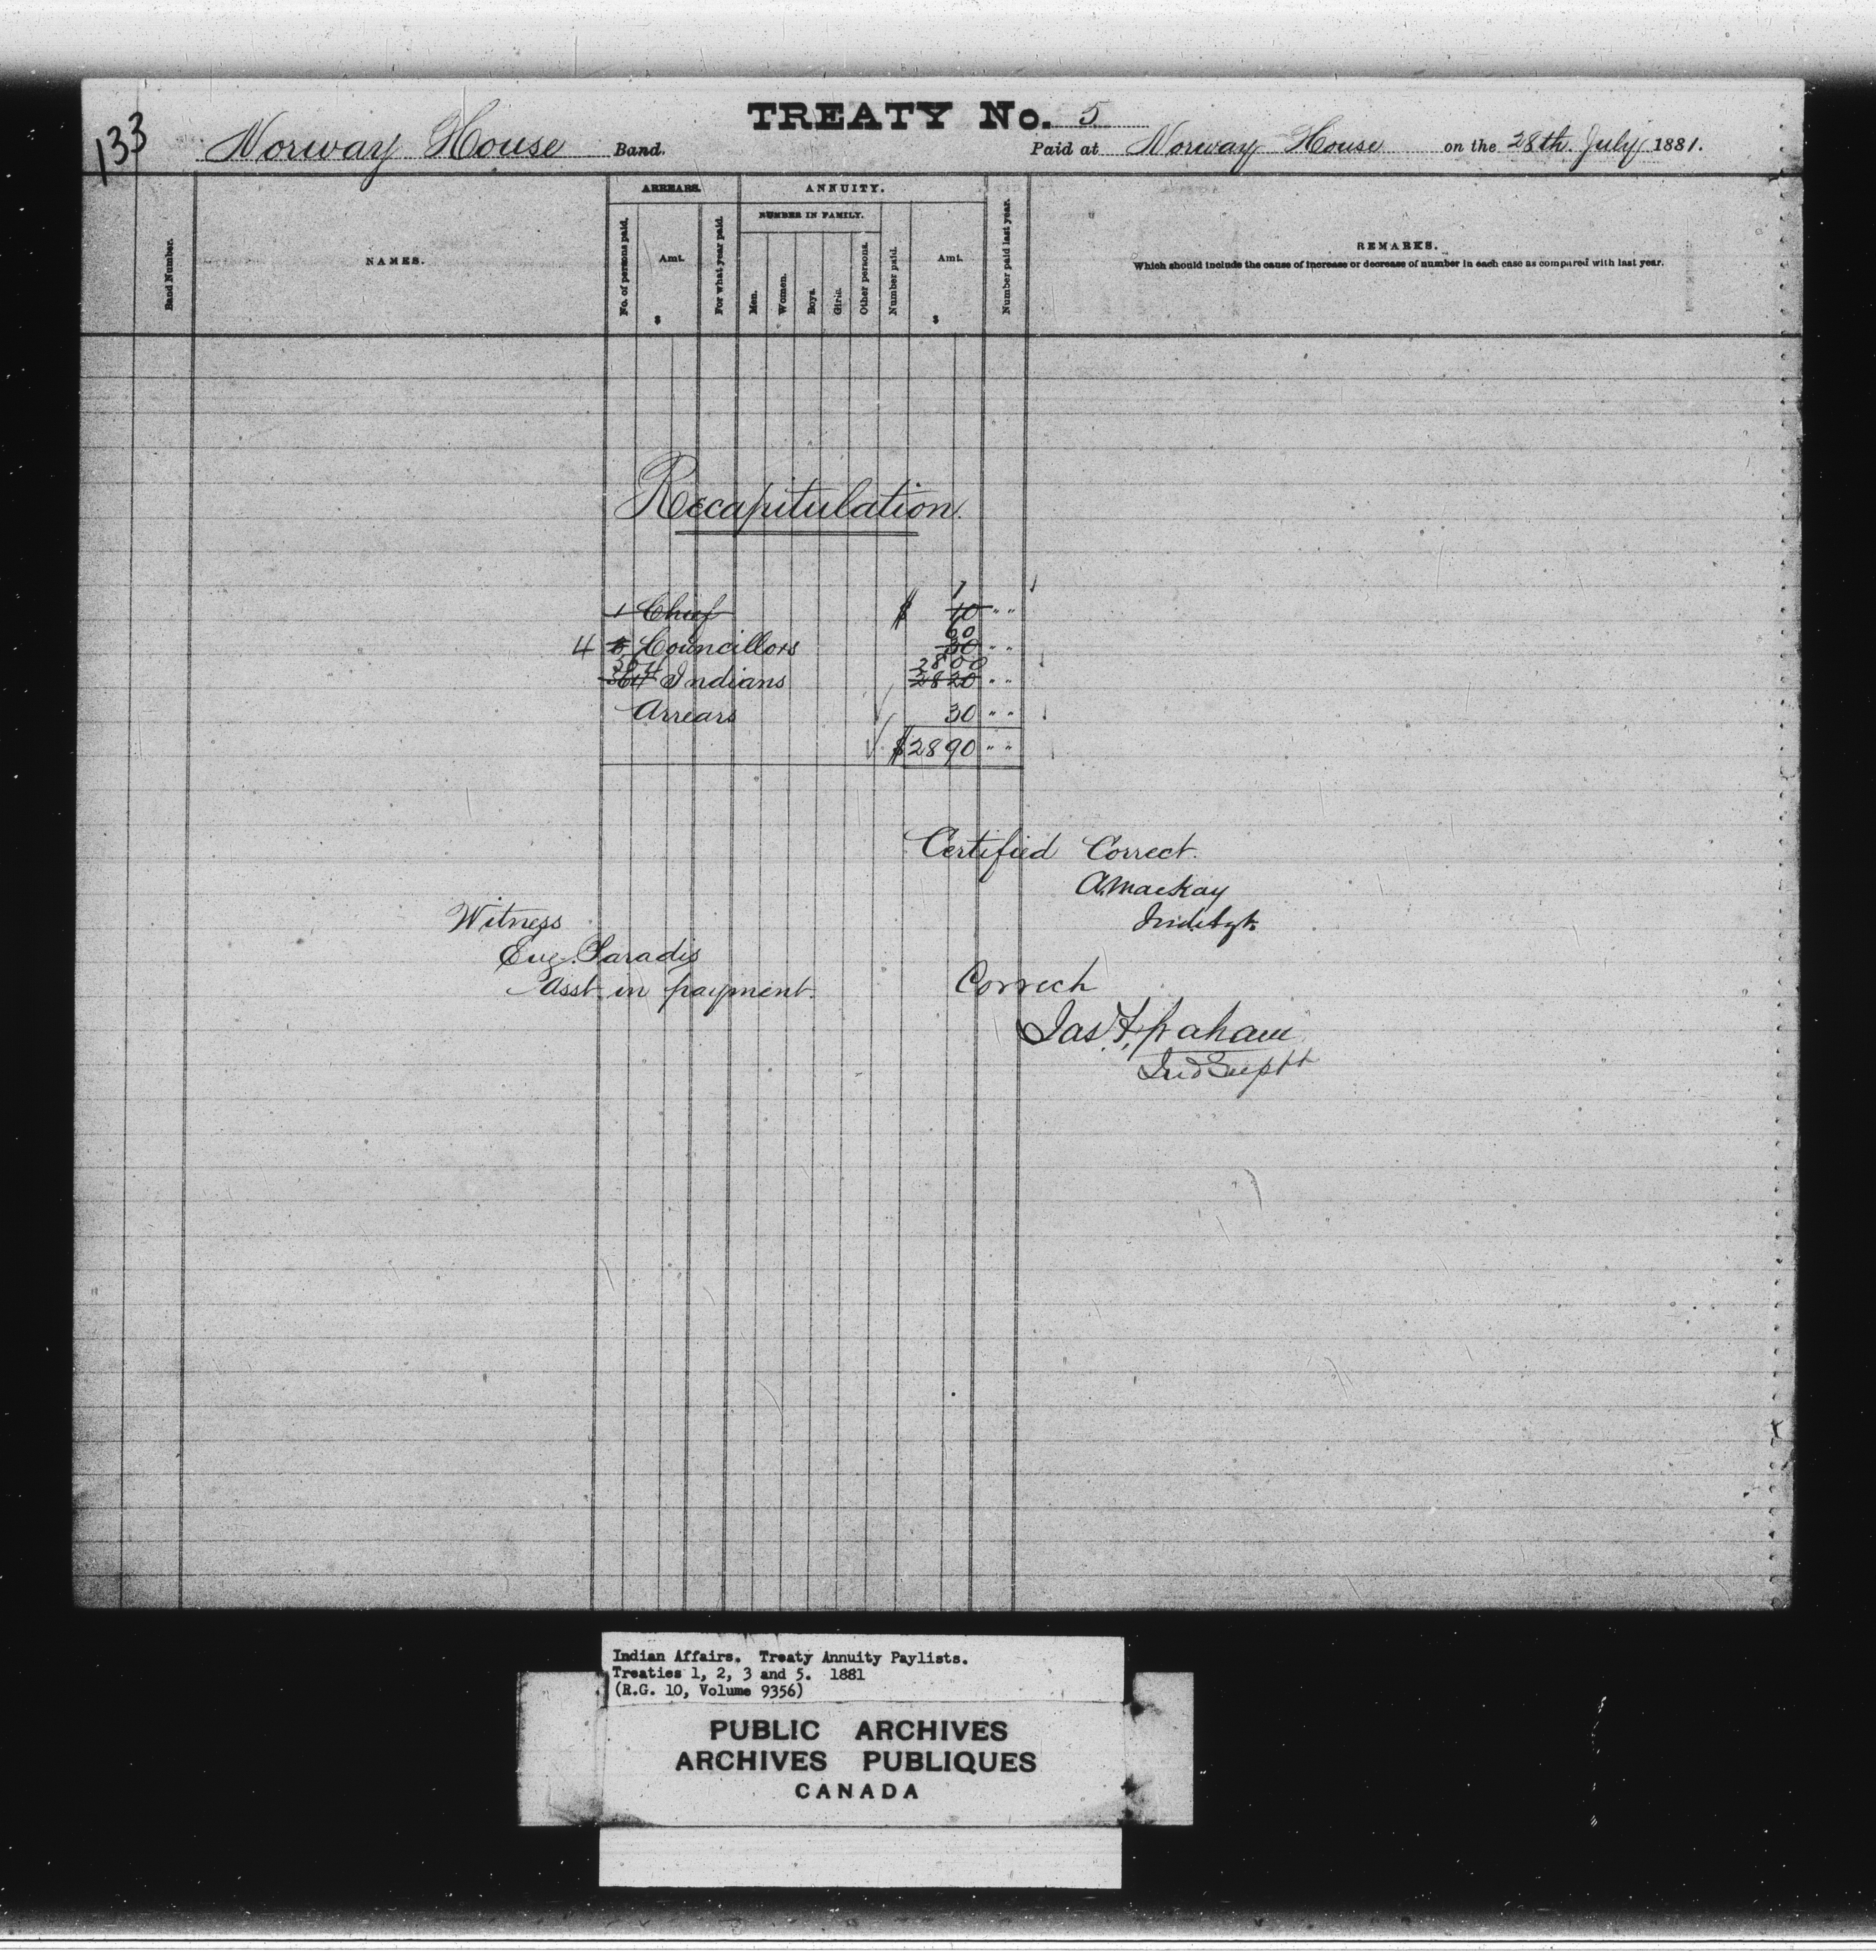 133
TREATY No. 5
Norway House Band.
Paid at Norway House on the 28th. July 1881.
Band Number.
NAMES.
ARREARS.
No. of persons paid.
Amt.
$
For what year paid.
ANNUITY.
NUMBER IN FAMILY.
Men.
Women.
Boys.
Girls.
Other persons.
Number paid.
Amt.
$
Number paid last year.
REMARKS.
Which should include the cause of increase or decrease of number in each case as compared with last year.
Recapitulation.
1 Chief $ 10 " "
60
4 Councillors 50 " "
2800
564 Indians 2820 " "
Arrears 30 " "
$2890 " "
Certified Correct.
A. Mackay
Ind. Agt.
Witness
Eug. Paradis
Asst. in payment.
Correct
Jas. F. Graham
Ind Suptt
Indian Affairs. Treaty Annuity Paylists.
Treaties 1, 2, 3 and 5. 1881
(R.G. 10, Volume 9356)
PUBLIC ARCHIVES
ARCHIVES PUBLIQUES
CANADA